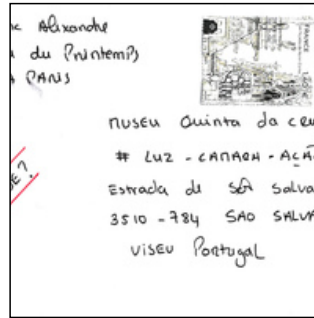 Alixandre
du Printemps
PARIS
FRANCE
MUSEU Quinta da CRU
# LUZ - CAMARA - AÇÃ
Estrada de Salva
3510-784 SAO SALVA
VISEU Portugal
E?